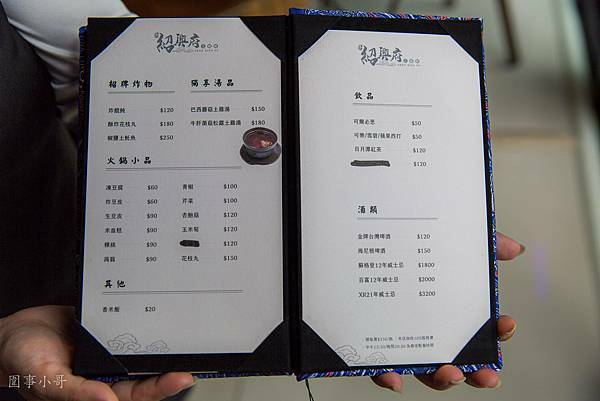 紹興府
招牌炸物
炸餛飩 $120
酥炸花枝丸 $180
椒鹽土魠魚 $250
獨享湯品
巴西蘑菇土雞湯 $150
牛肝蕈菇松露土雞湯 $180
火鍋小品
凍豆腐 $60
炸豆皮 $60
生豆皮 $90
米血糕 $90
粿條 $90
蒟蒻 $90
青椒 $100
芹菜 $100
杏鮑菇 $120
玉米筍 $120
$120
花枝丸 $150
其他
香米飯 $20
紹興府
飲品
可爾必思 $50
可樂/雪碧/蘋果西打 $50
日月潭紅茶 $120
$120
酒類
金牌台灣啤酒 $120
海尼根啤酒 $150
蘇格登12年威士忌 $1800
百富12年威士忌 $2000
XR21年威士忌 $3200
圍事小哥